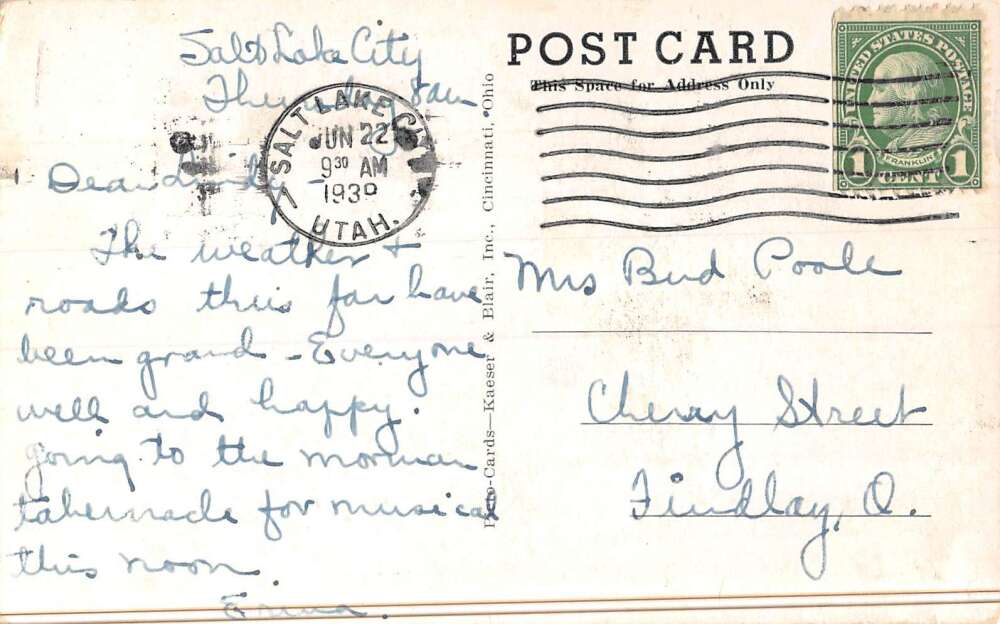 Salt Lake City
Thursday 8am
Dear Lindy -
The weather +
roads thus far have
been grand - Everyone
well and happy.
Going to the mormon
tabernacle for musical
this noon.
Erma.
SALT LAKE CITY
JUN 22
9 30 AM
1939
UTAH.
Photo-Cards—Kaeser & Blair, Inc., Cincinnati, Ohio
POST CARD
This Space for Address Only
UNITED STATES POSTAGE
FRANKLIN
1 CENT 1
Mrs Bud Poole
Cherry Street
Findlay, O.